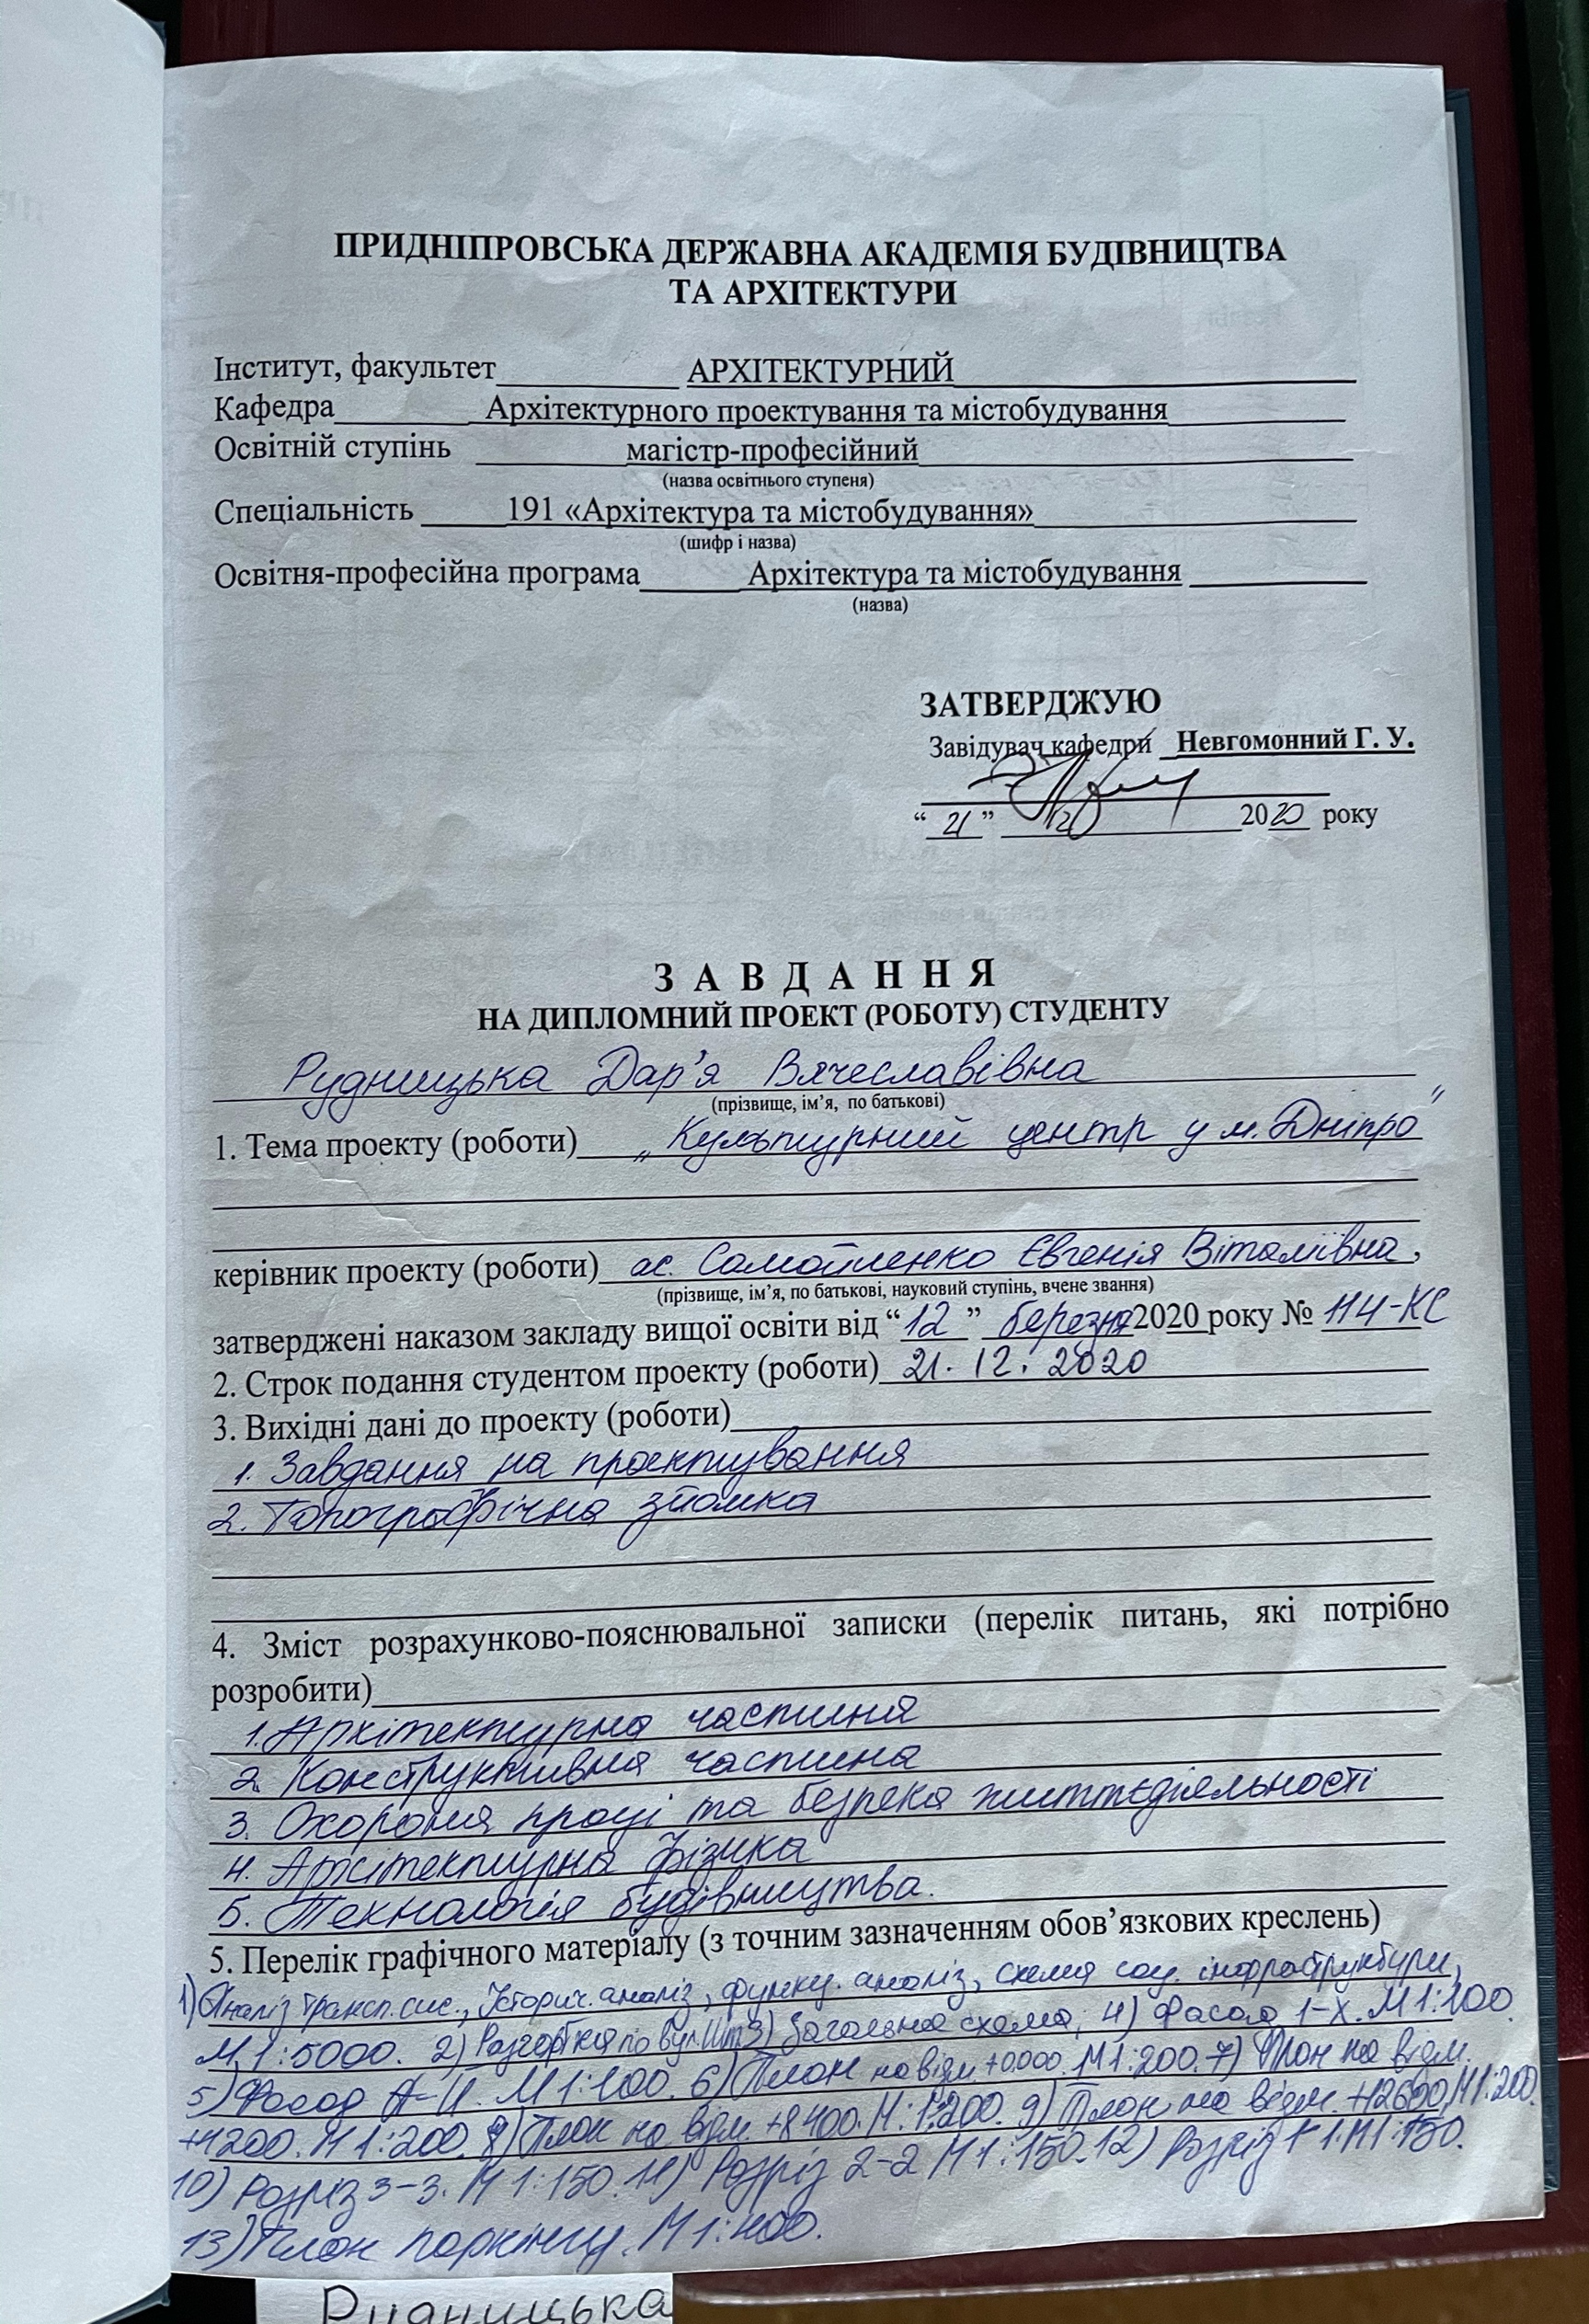 ПРИДНІПРОВСЬКА ДЕРЖАВНА АКАДЕМІЯ БУДІВНИЦТВА
ТА АРХІТЕКТУРИ
Інститут, факультет АРХІТЕКТУРНИЙ
Кафедра Архітектурного проектування та містобудування
Освітній ступінь магістр-професійний
(назва освітнього ступеня)
Спеціальність 191 «Архітектура та містобудування»
(шифр і назва)
Освітня-професійна програма Архітектура та містобудування
(назва)
ЗАТВЕРДЖУЮ
Завідувач кафедри Невгомонний Г. У.
“ 21 ” 12 2020 року
З А В Д А Н Н Я
НА ДИПЛОМНИЙ ПРОЕКТ (РОБОТУ) СТУДЕНТУ
Рудницька Дар'я Вячеславівна
(прізвище, ім’я, по батькові)
1. Тема проекту (роботи) „Культурний центр у м. Дніпро”
керівник проекту (роботи) ас. Самойленко Євгенія Віталіївна,
(прізвище, ім’я, по батькові, науковий ступінь, вчене звання)
затверджені наказом закладу вищої освіти від “12” березня 2020 року № 114-КС
2. Строк подання студентом проекту (роботи) 21. 12. 2020
3. Вихідні дані до проекту (роботи)
1. Завдання на проектування
2. Топографічна зйомка
4. Зміст розрахунково-пояснювальної записки (перелік питань, які потрібно
розробити)
1. Архітектурна частина
2. Конструктивна частина
3. Охорона праці та безпека життєдіяльності
4. Архітектурна фізика
5. Технологія будівництва.
5. Перелік графічного матеріалу (з точним зазначенням обов’язкових креслень)
1) Аналіз трансп. сис., Історич. аналіз, функц. аналіз, схема соц. інфраструктури,
М 1:5000. 2) Розгортка по вул. 3) Загальна схема, 4) Фасад 1-X. М 1:100
5) Фасад М 1:100. 6) План на відм. +0.000. М 1:200. 7) План на відм.
+4200. М 1:200. 8) План на відм. +8400. М 1:200. 9) План на відм. +12600, М 1:200.
10) Розріз 3-3. М 1:150. 11) Розріз 2-2 М 1:150. 12) Розріз 1-1. М 1:150.
13) План паркінгу. М 1:400.
Рудницька